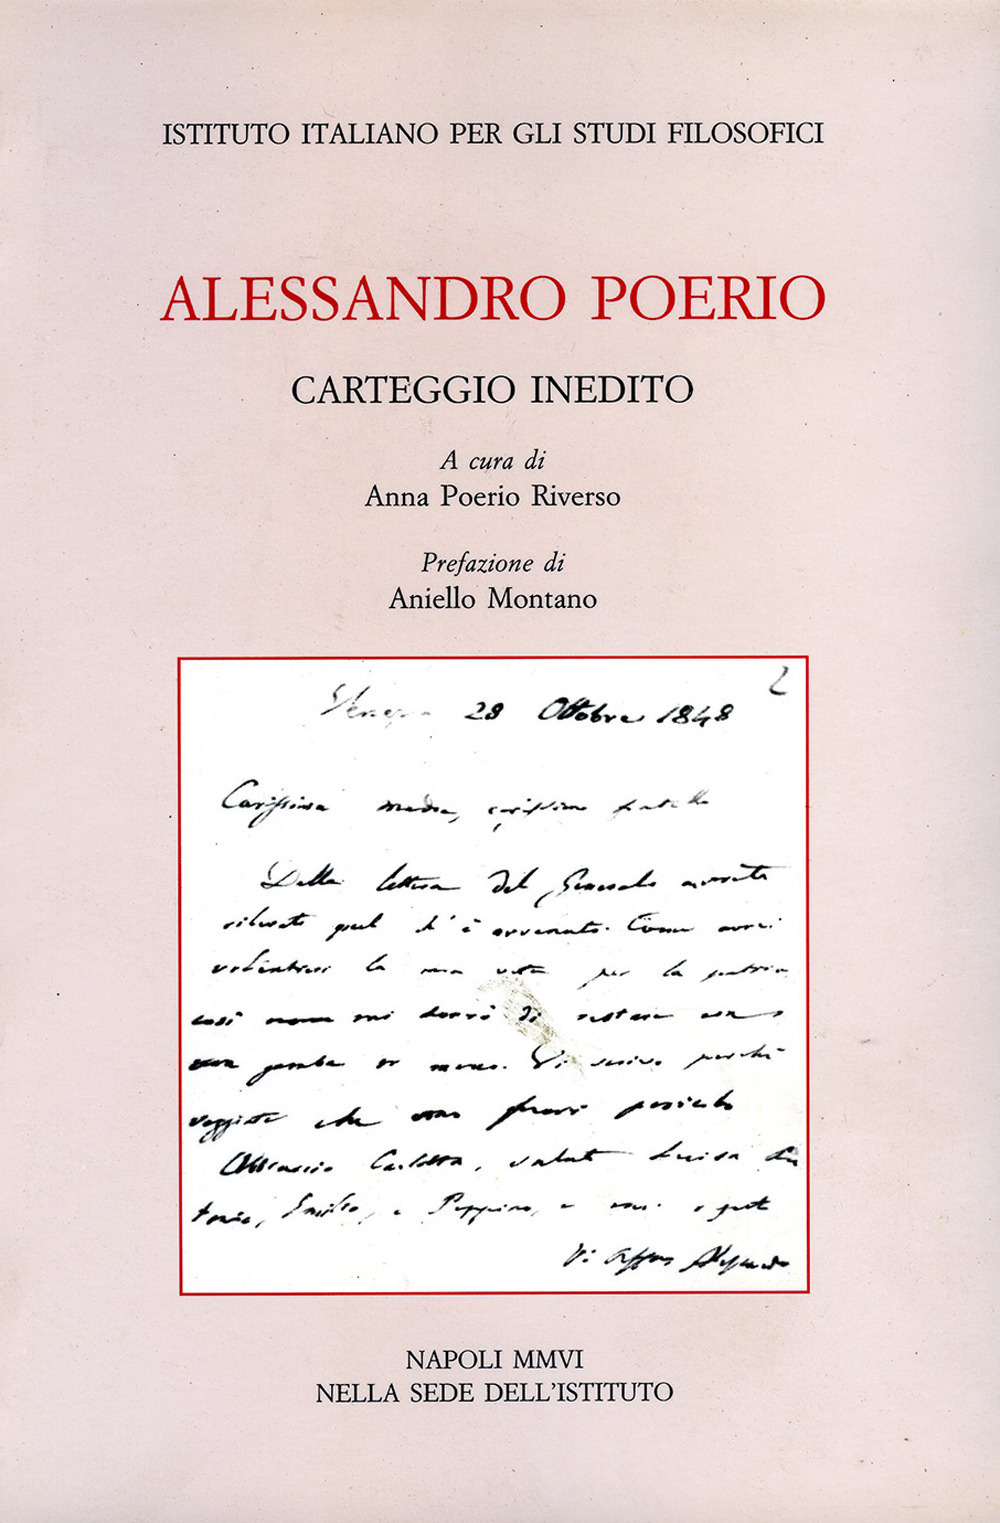 ISTITUTO ITALIANO PER GLI STUDI FILOSOFICI
ALESSANDRO POERIO
CARTEGGIO INEDITO
A cura di
Anna Poerio Riverso
Prefazione di
Aniello Montano
2
28 Ottobre 1848
Carissima madre, carissimo fratello
Dalla lettera del Generale
quel ch' è avvenuto. Come avrei
la mia vita per la patria
così non mi dorrà di restare con
una gamba di meno. Vi scrivo perchè
veggiate che son fuori pericolo
Abbraccio Carlotta, Luisa
Emilio, e Peppino, e
Vi Alessandro
NAPOLI MMVI
NELLA SEDE DELL'ISTITUTO